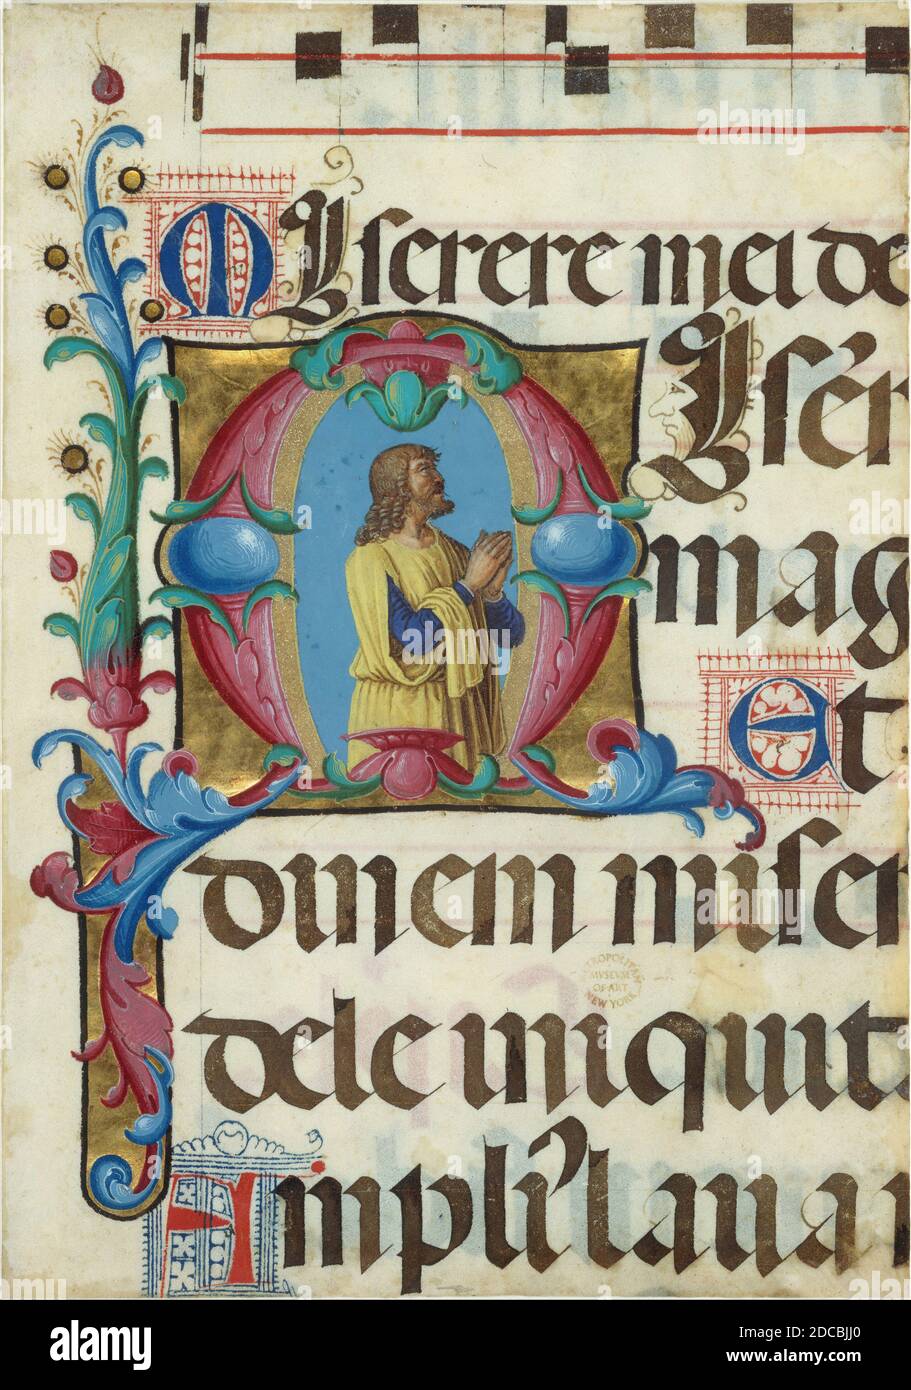 MIserere mei de
MIsér
mag
Et
dinem miser
dele iniquit
Ampli' laua
TROPOLITAN
MVSEUM
OF ART
NEW YORK
alamy
Image ID: 2DCBJJ0
www.alamy.com